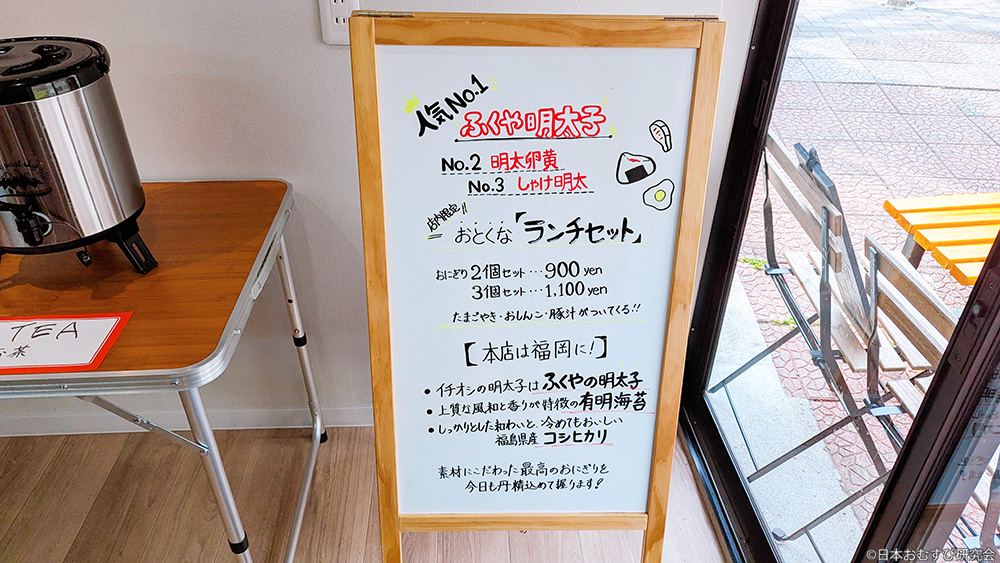 人気No.1
ふくや明太子
No.2 明太卵黄
No.3 しゃけ明太
店内限定!!
おとくな「ランチセット」
おにぎり2個セット…900yen
3個セット…1,100yen
たまごやき・おしんこ・豚汁がついてくる!!
【本店は福岡に!】
• イチオシの明太子はふくやの明太子
• 上質な風和と香りが特徴の有明海苔
• しっかりとした和わいと、冷めてもおいしい
福島県産 コシヒカリ
素材にこだわった最高のおにぎりを
今日も丹精込めて握ります!
TEA
茶
©日本おむすび研究会